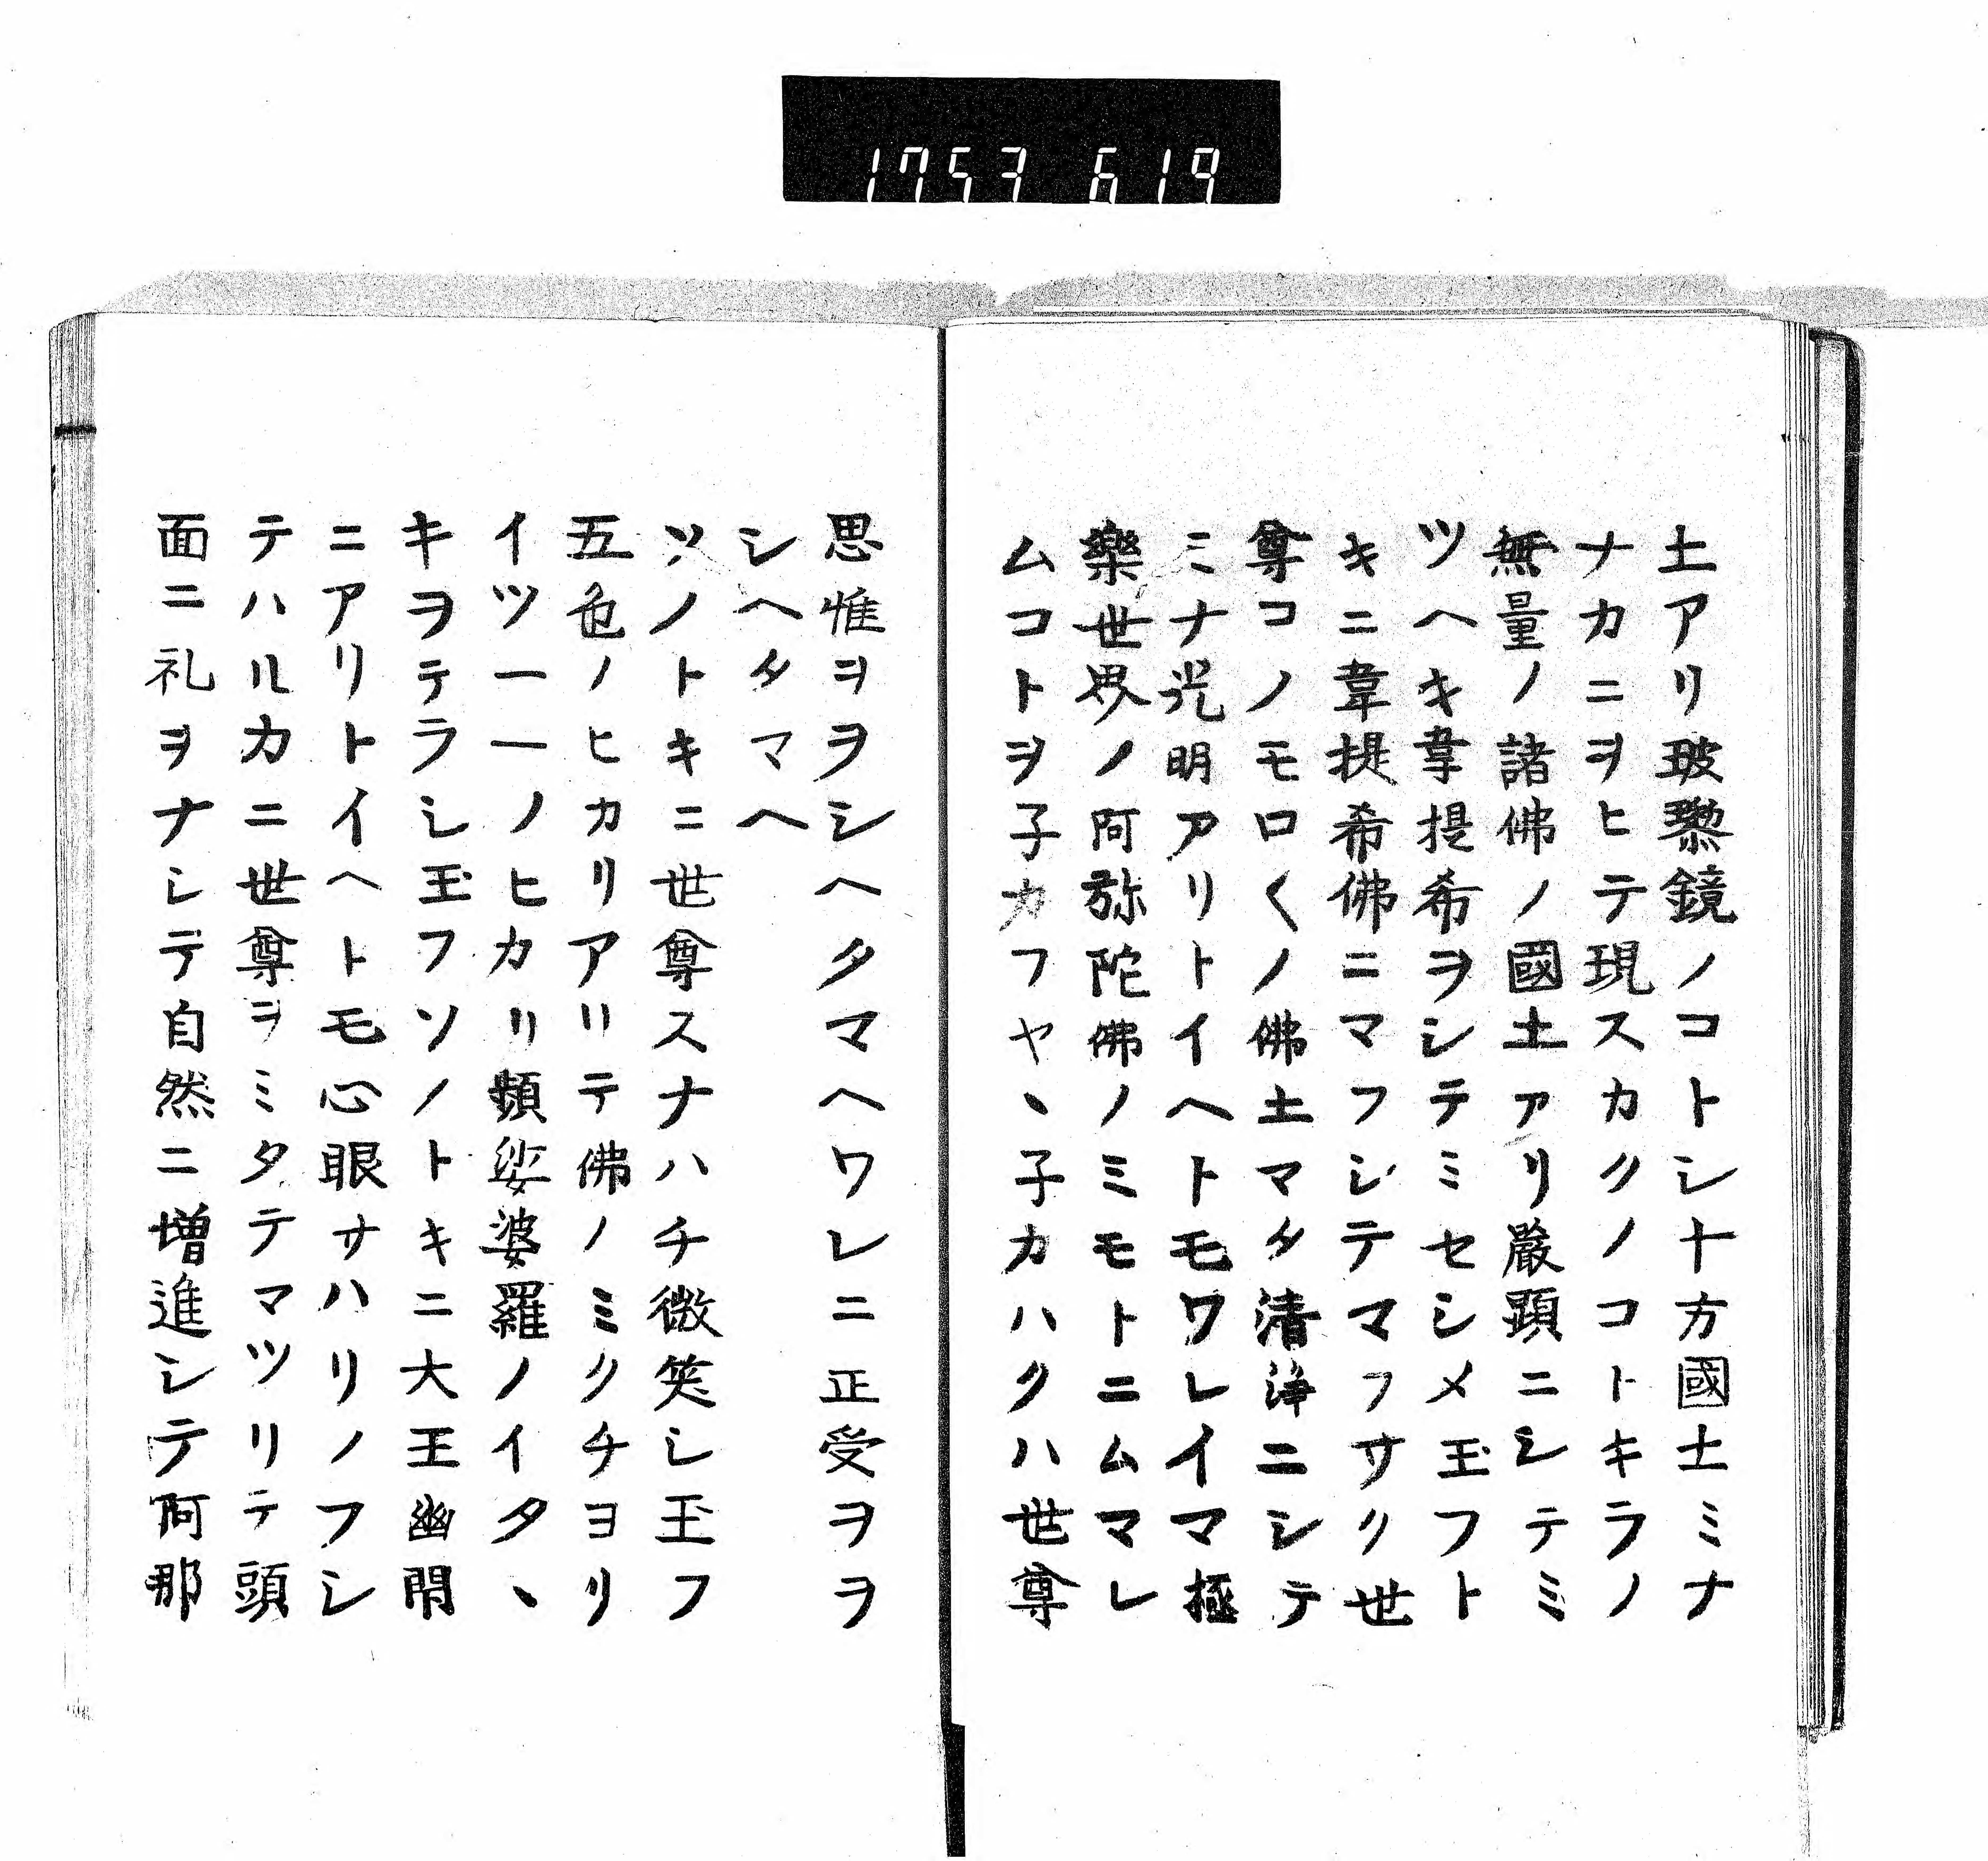 1753 619
土アリ玻瓈鏡ノコトシ十方國土ミナ
ナカニヲヒテ現スカクノコトキラノ
無量ノ諸佛ノ國土アリ嚴顕ニシテミ
ツヘキ韋提希ヲシテミセシメ玉フト
キニ韋提希佛ニマフシテマフサク世
尊コノモロ〱ノ佛土マタ清浄ニシテ
ミナ光明アリトイヘトモワレイマ極
樂世界ノ阿弥陀佛ノミモトニムマレ
ムコトヲ子カフヤヽ子カハクハ世尊
思惟ヲヲシヘタマヘワレニ正受ヲヲ
シヘタマヘ
ソノトキニ世尊スナハチ微笑シ玉フ
五色ノヒカリアリテ佛ノミクチヨリ
イツ一一ノヒカリ頻娑婆羅ノイタヽ
キヲテラシ玉フソノトキニ大王幽閇
ニアリトイヘトモ心眼サハリノフシ
テハルカニ世尊ヲミタテマツリテ頭
面ニ礼ヲナシテ自然ニ増進シテ阿那